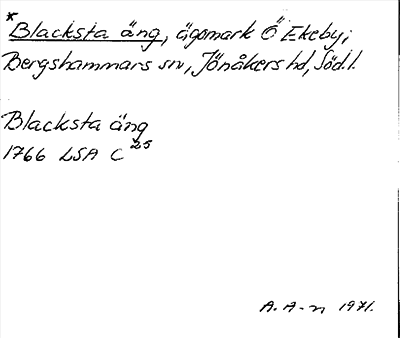 *Blacksta äng, ägomark Ö Ekeby,
Bergshammars sn, Jönåkers hd, Södl.
Blacksta äng
1766 LSA C 25
A. A-n 1971.